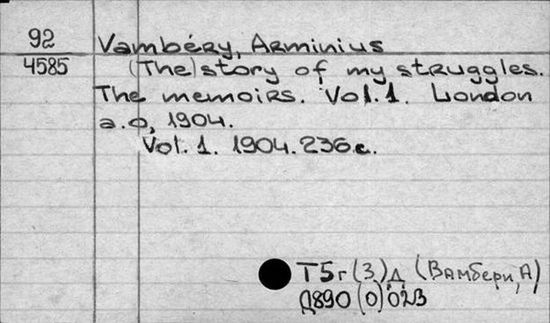 92
4585
Vambéry, Arminius
(The) story of my struggles.
The memoirs. Vol. 1. London
a.o, 1904.
Vol. 1. 1904. 236 c.
T5г(3)д (Вамбери, А)
Д890(0)023